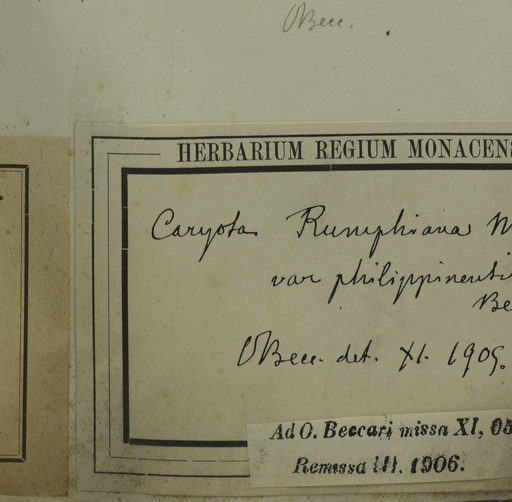 OBecc.
HERBARIUM REGIUM MONACENS
Caryota Rumphiana M
var philippinensi
Be
OBecc. det. XI. 1905.
Ad O. Beccari missa XI, 05
Remissa III. 1906.